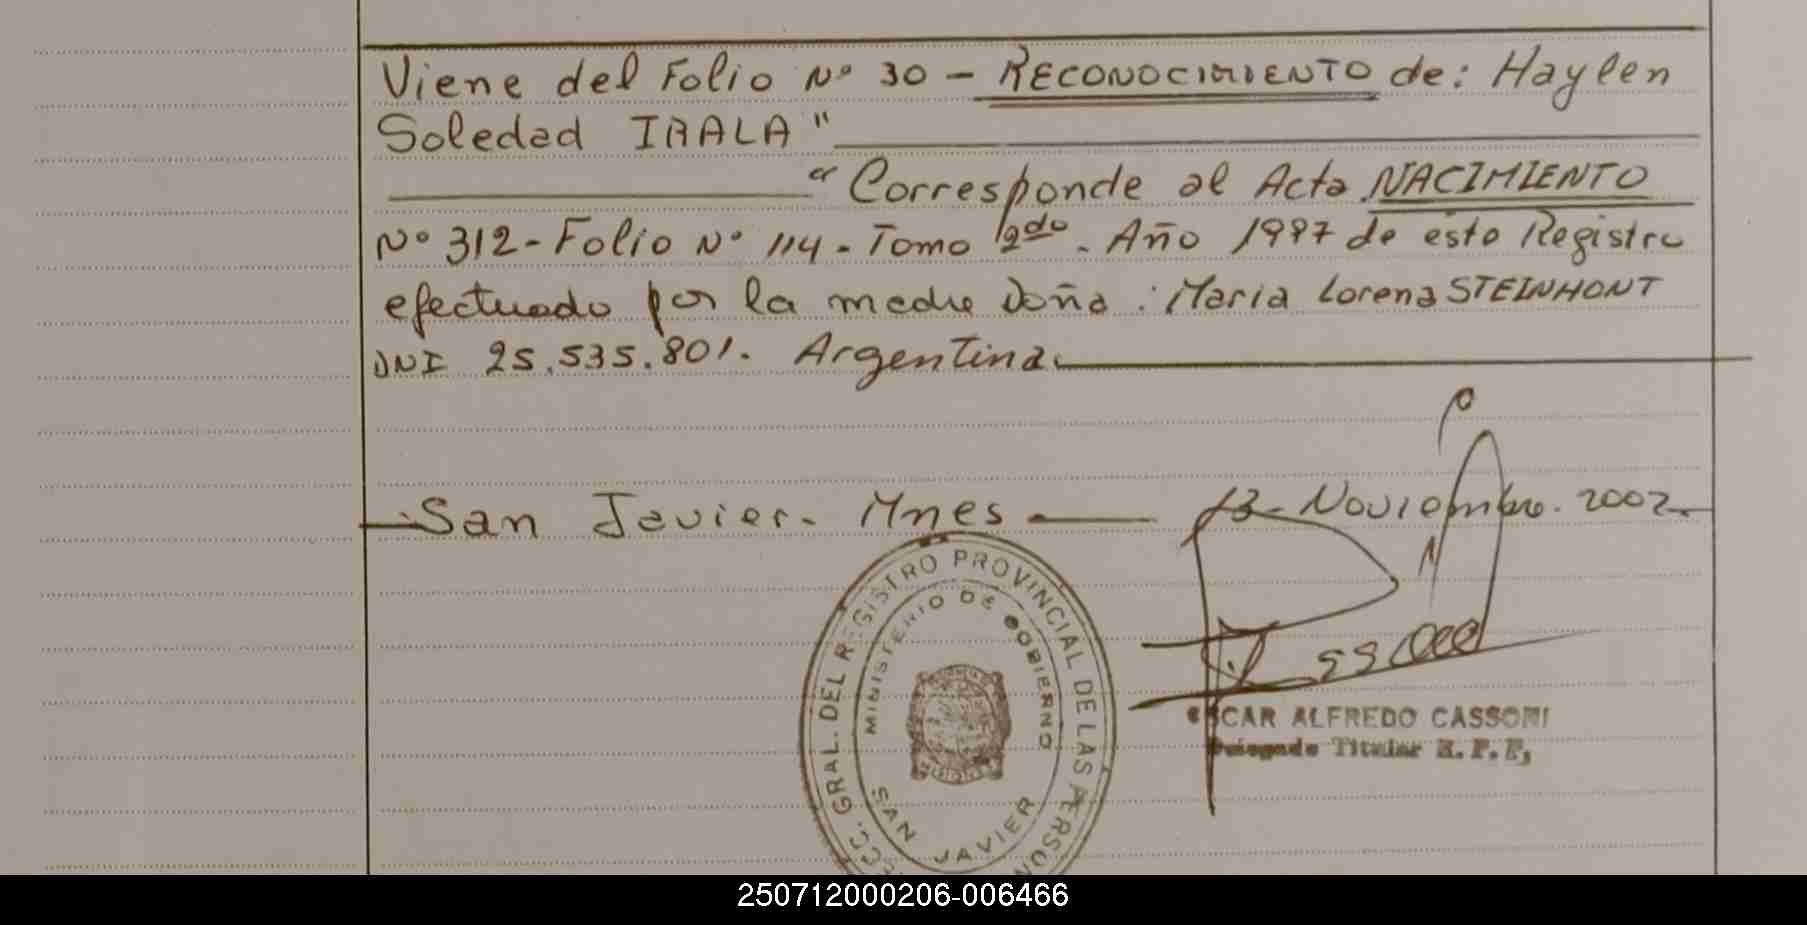 Viene del Folio Nº 30 - RECONOCIMIENTO de: Haylen
Soledad IRALA"
"Corresponde al Acta NACIMIENTO
Nº 312 - Folio Nº 114 - Tomo 2do. Año 1997 de este Registro
efectuado por la madre Doña: Maria Lorena STEINHONT
DNI 25.535.801. Argentina.
San Javier. Mnes 13 - Noviembre. 2002.
GRAL. DEL REGISTRO PROVINCIAL DE LAS PERSON
MINISTERIO DE GOBIERNO
SAN JAVIER
OSCAR ALFREDO CASSONI
Delegado Titular R. P. P.
250712000206-006466